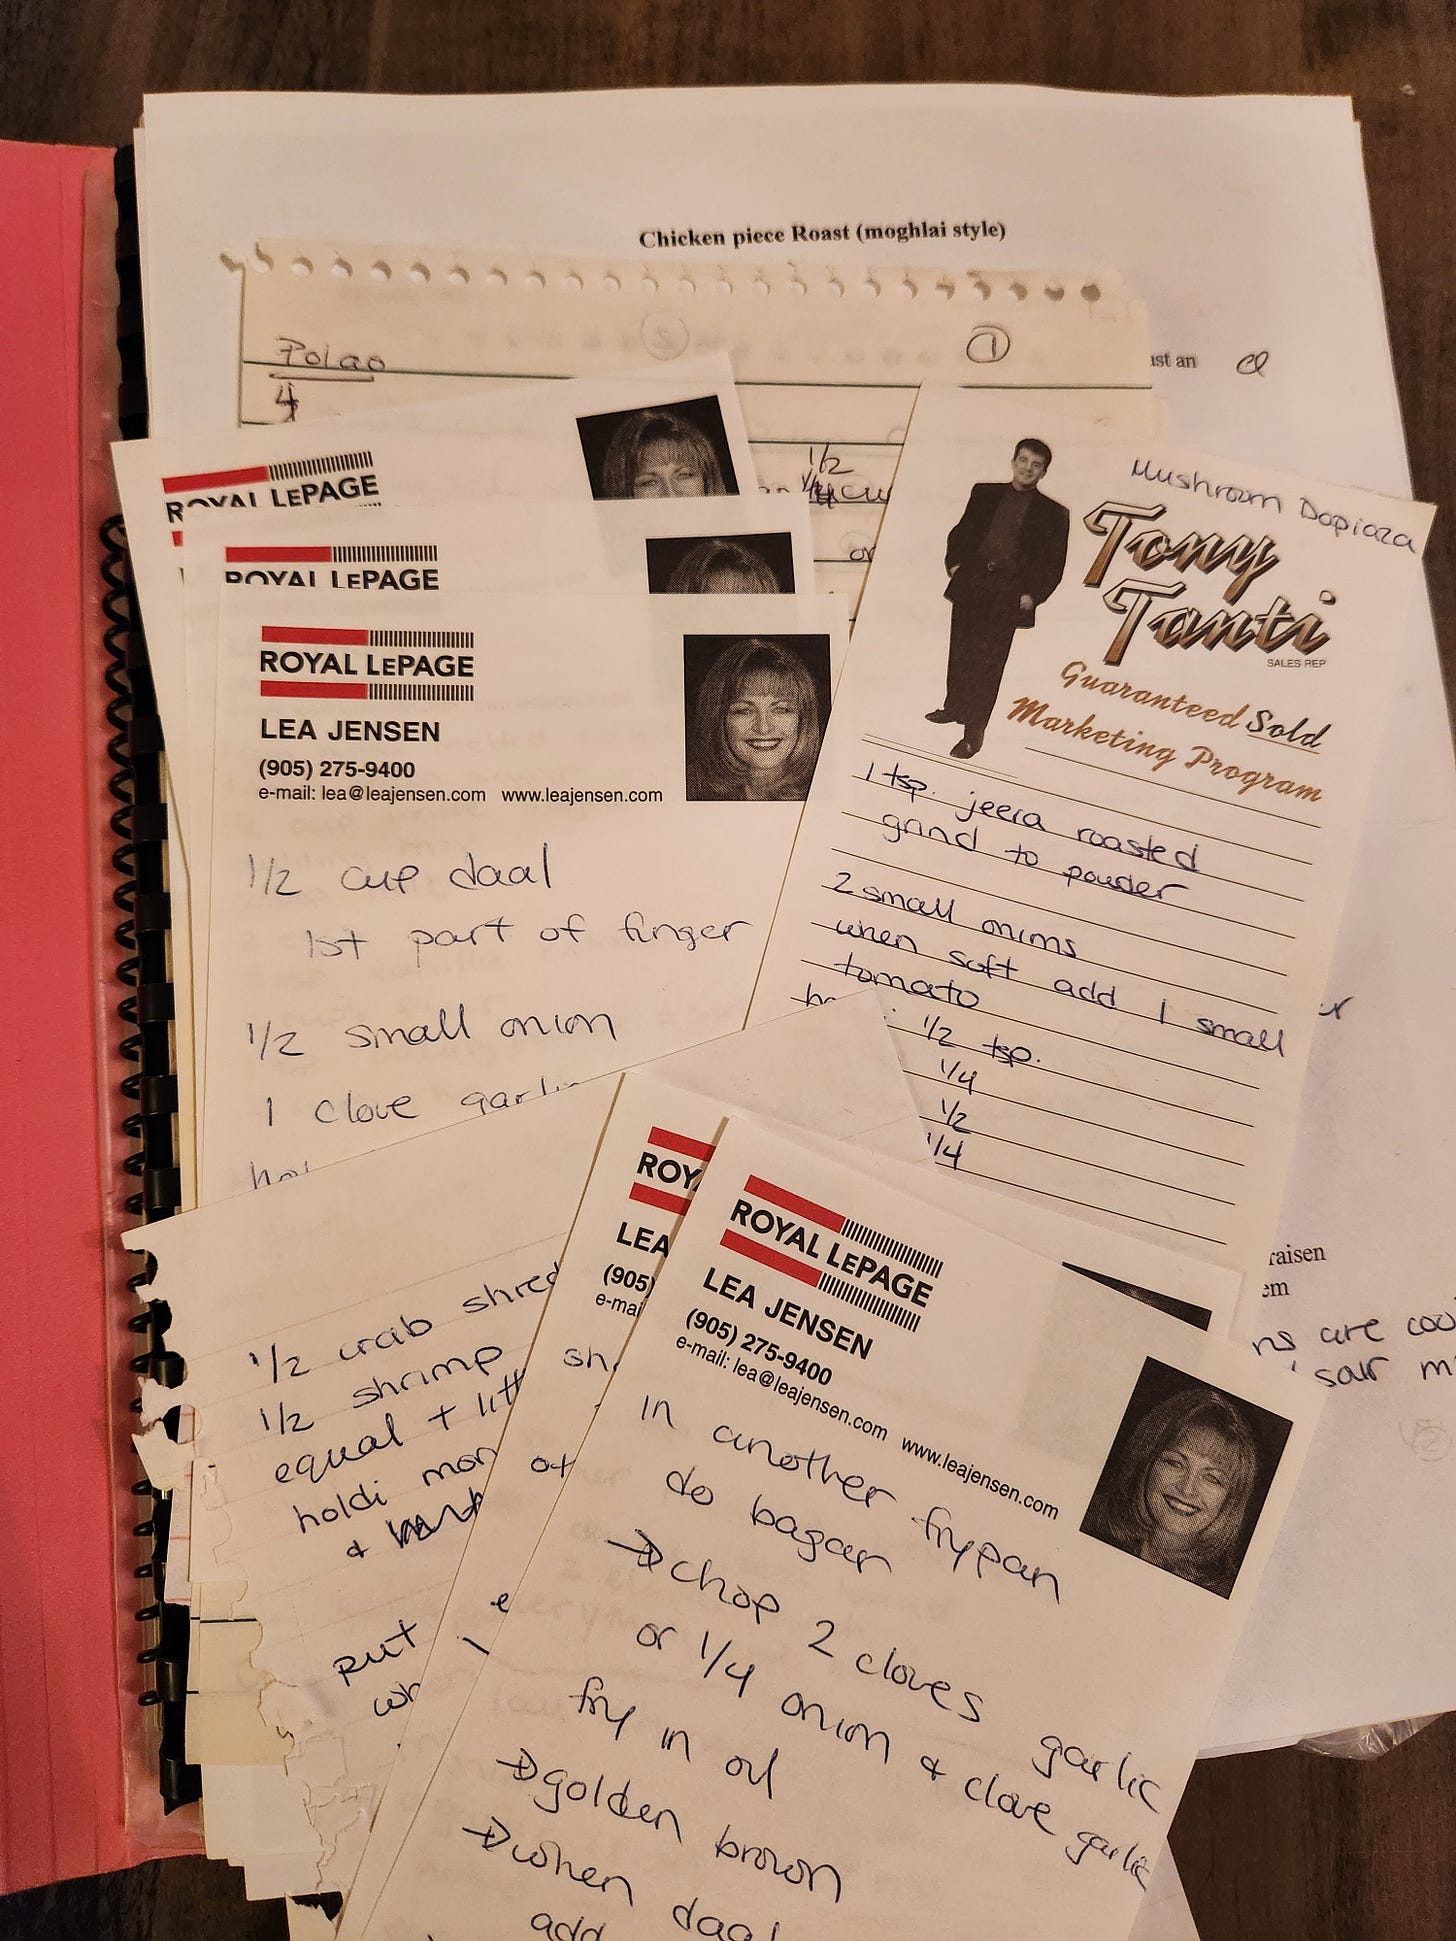 Chicken piece Roast (moghlai style)
Polao
4
2
1
ast an
1/2
1/4 cu
or
ROYAL LEPAGE
ROYAL LEPAGE
ROYAL LEPAGE
LEA JENSEN
(905) 275-9400
e-mail: lea@leajensen.com www.leajensen.com
1/2 cup daal
1st part of finger
1/2 small onion
1 clove garlic
Mushroom Dopiaza
Tony
Tanti
SALES REP
Guaranteed Sold
Marketing Program
1 tsp. jeera roasted
grind to powder
2 small onions
when soft add 1 small
tomato
1/2 tsp.
1/4
1/2
1/4
raisen
em
ns are coo
sair m
1/2 crab shred
1/2 shrimp
equal + litt
holdi mor
&
put
wh
ROY
LEA
(905)
e-mai
sh
ot
e
ROYAL LEPAGE
LEA JENSEN
(905) 275-9400
e-mail: lea@leajensen.com www.leajensen.com
in another frypan
do bagar
→ chop 2 cloves garlic
or 1/4 onion & clove garlic
fry in oil
→ golden brown
→ when daal
add